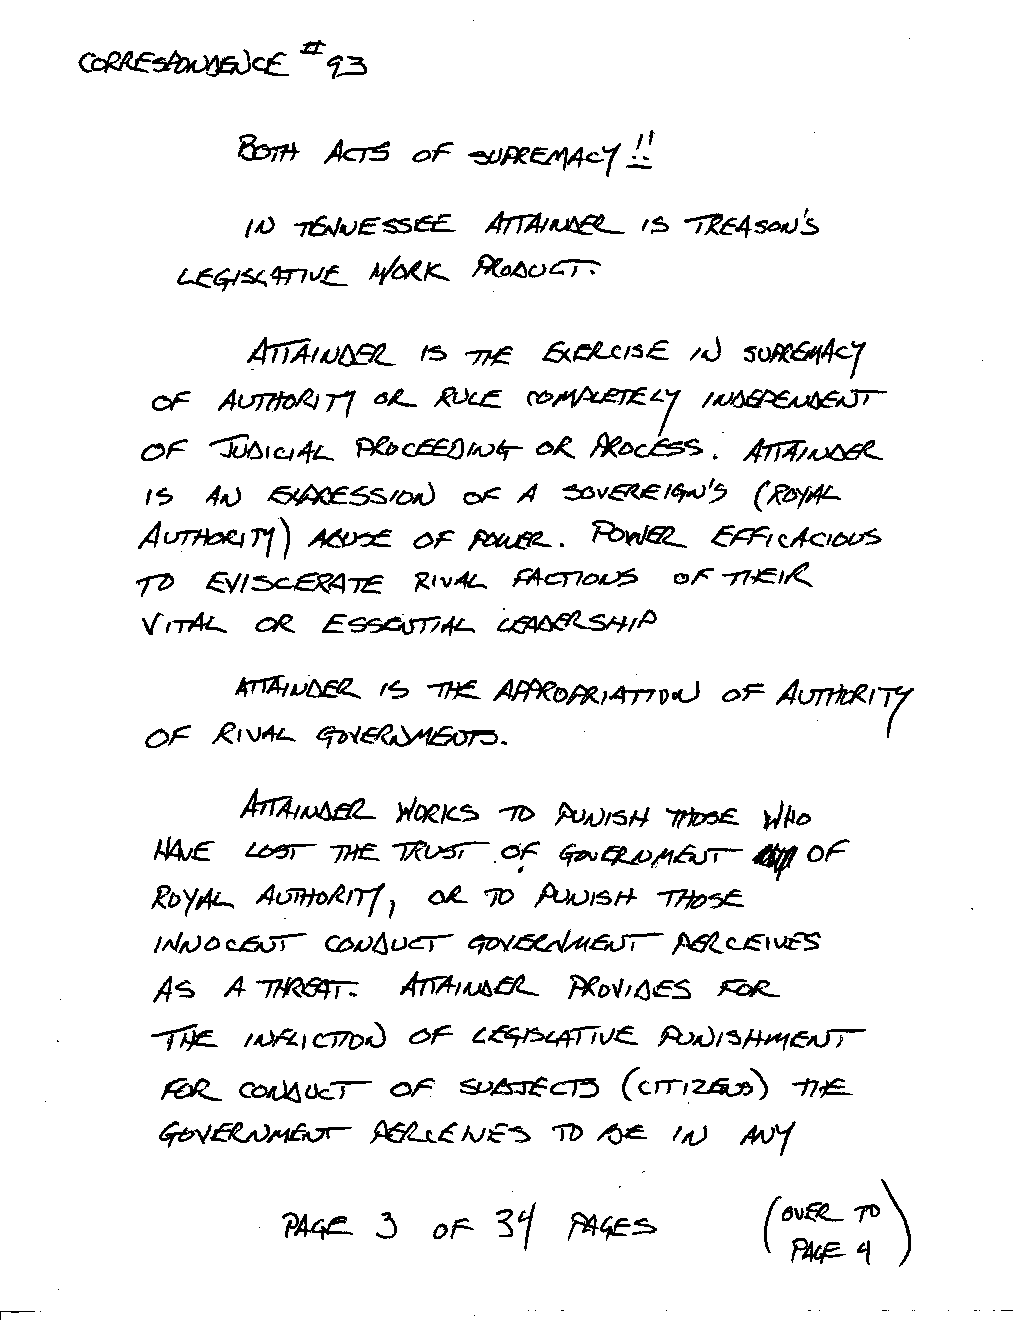 CORRESPONDENCE #93
BOTH ACTS OF SUPREMACY!!
IN TENNESSEE ATTAINDER IS TREASON'S
LEGISLATIVE WORK PRODUCT.
ATTAINDER IS THE EXERCISE IN SUPREMACY
OF AUTHORITY OR RULE COMPLETELY INDEPENDENT
OF JUDICIAL PROCEEDING OR PROCESS. ATTAINDER
IS AN EXPRESSION OF A SOVEREIGN'S (ROYAL
AUTHORITY) ABUSE OF POWER. POWER EFFICACIOUS
TO EVISCERATE RIVAL FACTIONS OF THEIR
VITAL OR ESSENTIAL LEADERSHIP
ATTAINDER IS THE APPROPRIATION OF AUTHORITY
OF RIVAL GOVERNMENTS.
ATTAINDER WORKS TO PUNISH THOSE WHO
HAVE LOST THE TRUST OF GOVERNMENT OF
ROYAL AUTHORITY, OR TO PUNISH THOSE
INNOCENT CONDUCT GOVERNMENT PERCEIVES
AS A THREAT. ATTAINDER PROVIDES FOR
THE INFLICTION OF LEGISLATIVE PUNISHMENT
FOR CONDUCT OF SUBJECTS (CITIZENS) THE
GOVERNMENT PERCEIVES TO BE IN ANY
PAGE 3 OF 34 PAGES
(OVER TO
PAGE 4)